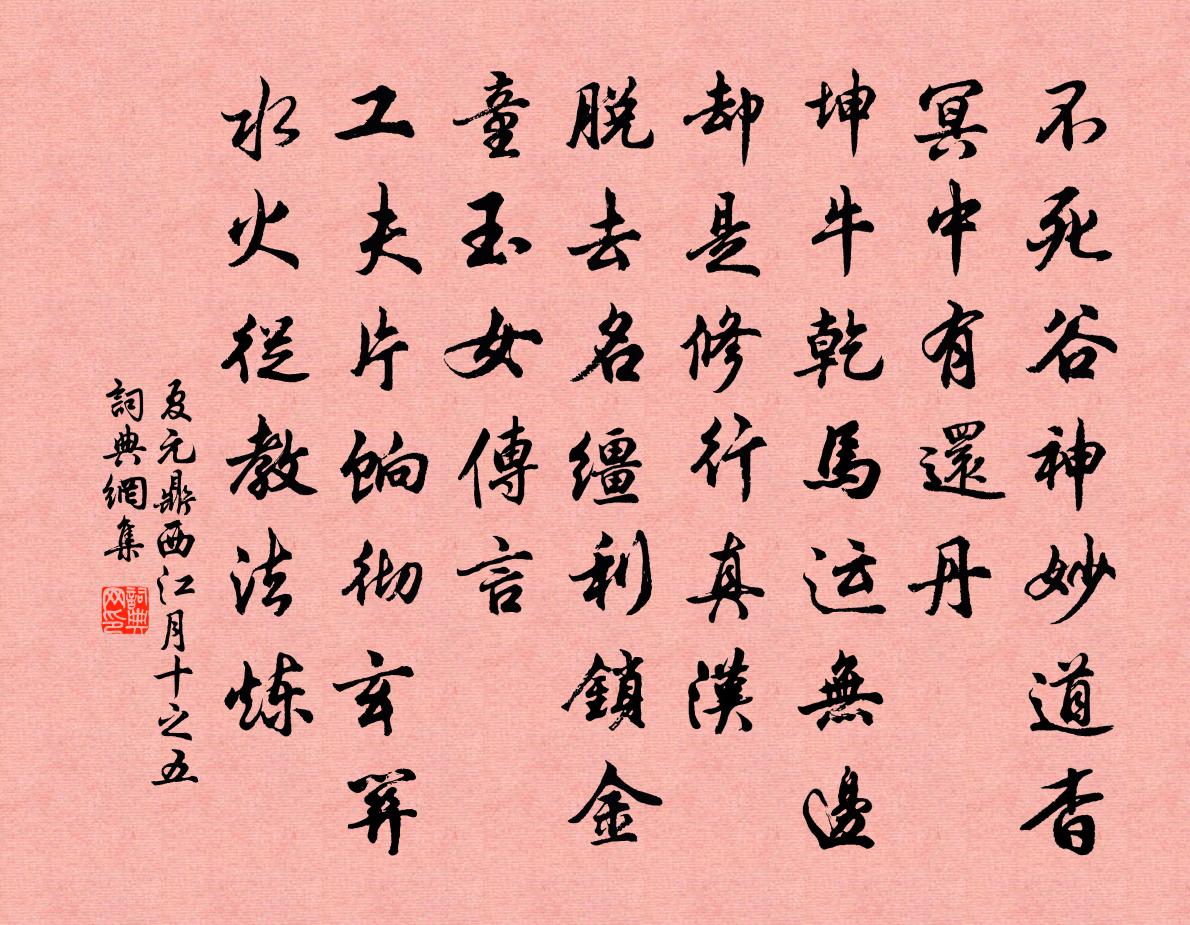 不死谷神妙道杳
冥中有還丹
坤牛乾馬运無邊
却是修行真漢
脱去名繮利鎖金
童玉女傳言
工夫片餉彻玄關
水火從教法炼
夏元鼎西江月十之五
詞典網集
詞典网印